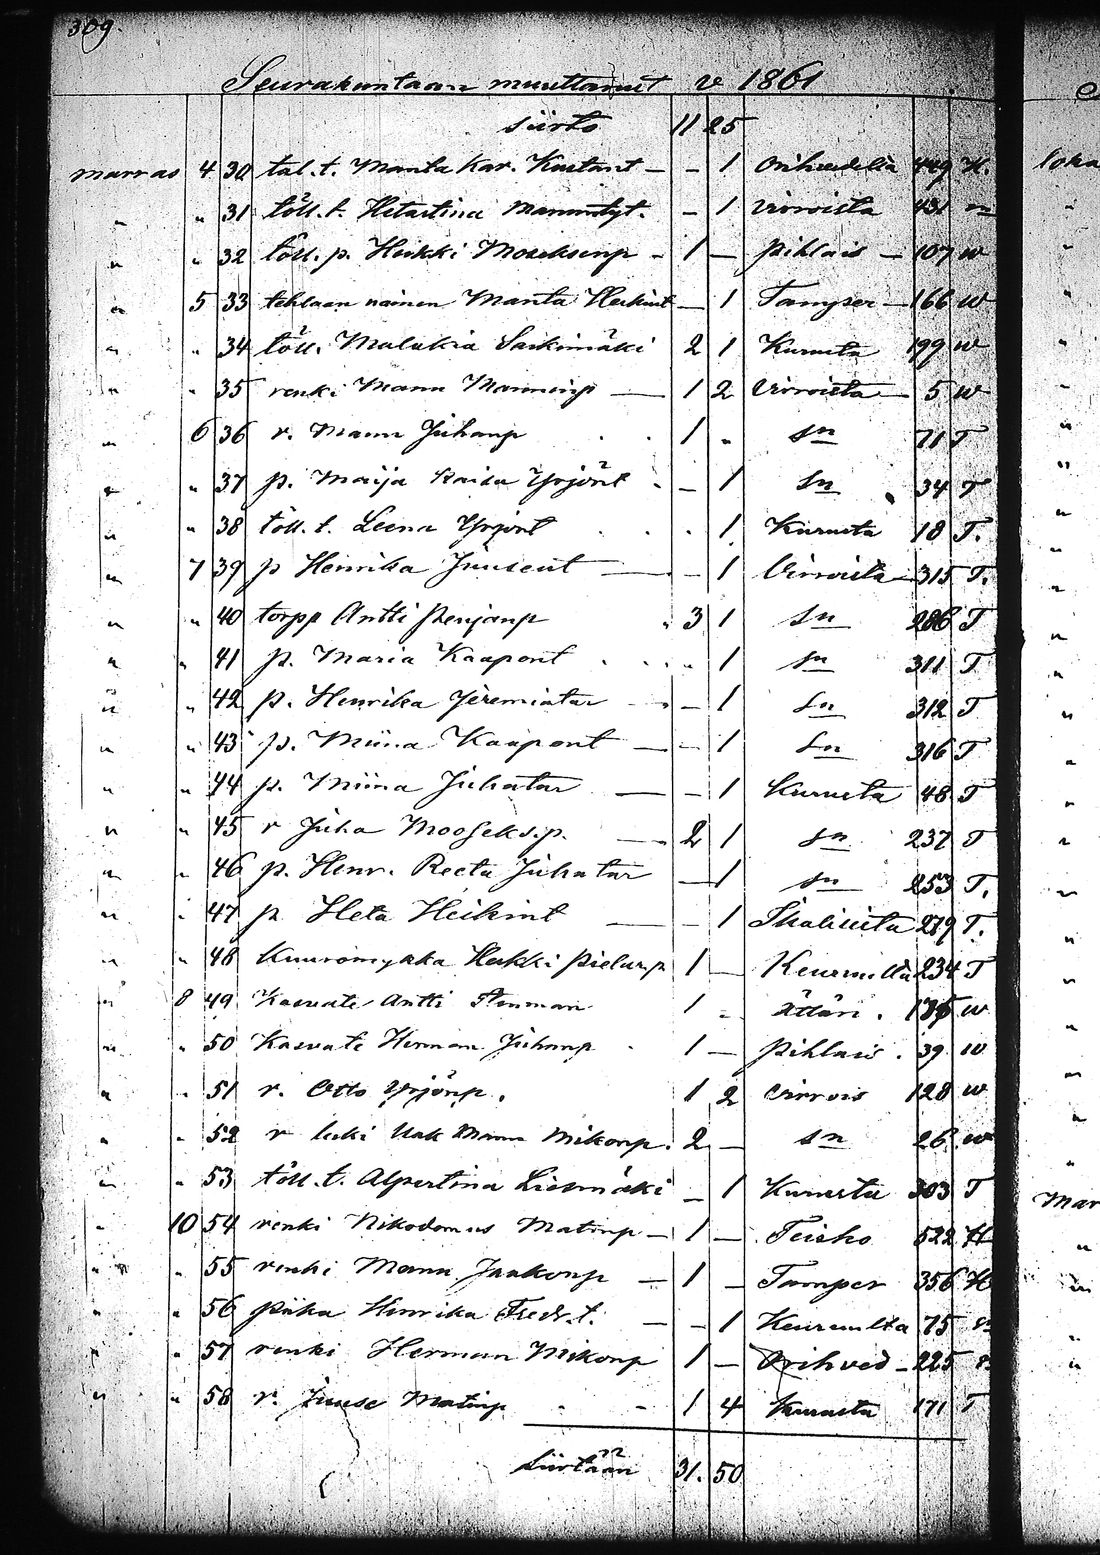 309.
Seurakuntaan muuttanut v 1861
siirto 11 25
marras 4 30 tal. t. Manta Kar. Kustant — - 1 Orihvedeltä 449 H. loka
" " 31 töll. t. Hetastina Mannintyt. - 1 Virroista 431 "
" " 32 töll. p. Heikki Moseksenp - 1 — Pihlais — 107 w
" 5 33 tehlaan nainen Manta Heikint — 1 Tamper — 166 w
" " 34 töll. Malakia Saikimäki 2 1 Kurusta 199 w
" " 35 renki Mann Manninp — 1 2 Virroista — 5 w
" 6 36 r. Mann Juhanp . . 1 " sn 71 T
" " 37 p. Maija Kaisa Yrjönt - - 1 sn 34 T
" " 38 töll. t. Leena Yrjönt . . . 1 Kurusta 18 T.
" 7 39 p Henrika Juusent — - 1 Virroista — 315 T.
" " 40 torpp Antti Penjanp 3 1 sn 286 T
" " 41 p. Maria Kaapont . . . " 1 sn 311 T
" " 42 p. Henrika Jeremiatar — - 1 sn 312 T
" " 43 p. Miina Kaapont — - 1 sn 316 T
" " 44 p. Miina Juhatar — - 1 Kurusta 48 T
" " 45 r Juha Mooseks.p. — 2 1 sn 237 T
" " 46 p. Henr. Reeta Juhatar — 1 sn 253 T.
" " 47 p Heta Heikint — - 1 Ikalisista 279 T.
" " 48 Kuuromykkä Heikki 1 — Keuruulta 234 T
" 8 49 Kasvate Antti Stenman 1 - Ättäri . w
" " 50 Kasvate Herman Juhanp - 1 — Pihlais . 39 w
" " 51 r. Otto Yrjönp. 1 2 Virrois 128 w
" " 52 r leski Mann Mikonp. 2 — sn 26 w
" " 53 töll. t. Alpertina Liesmäki - 1 Kurusta 303 T
" 10 54 renki Nikodemus Matinp — 1 — Teisko 522 H Mar
" " 55 renki Mann Jaakonp — 1 — Tamper 356 H
" " 56 piika Henrika Fredr. t. — - 1 Keuruulta 75
" " 57 renki Herman Mikonp 1 — Orihved — 225
" " 58 r. Juuse Matinp - - 1 4 Kurusta 171 T
siirtään 31. 50